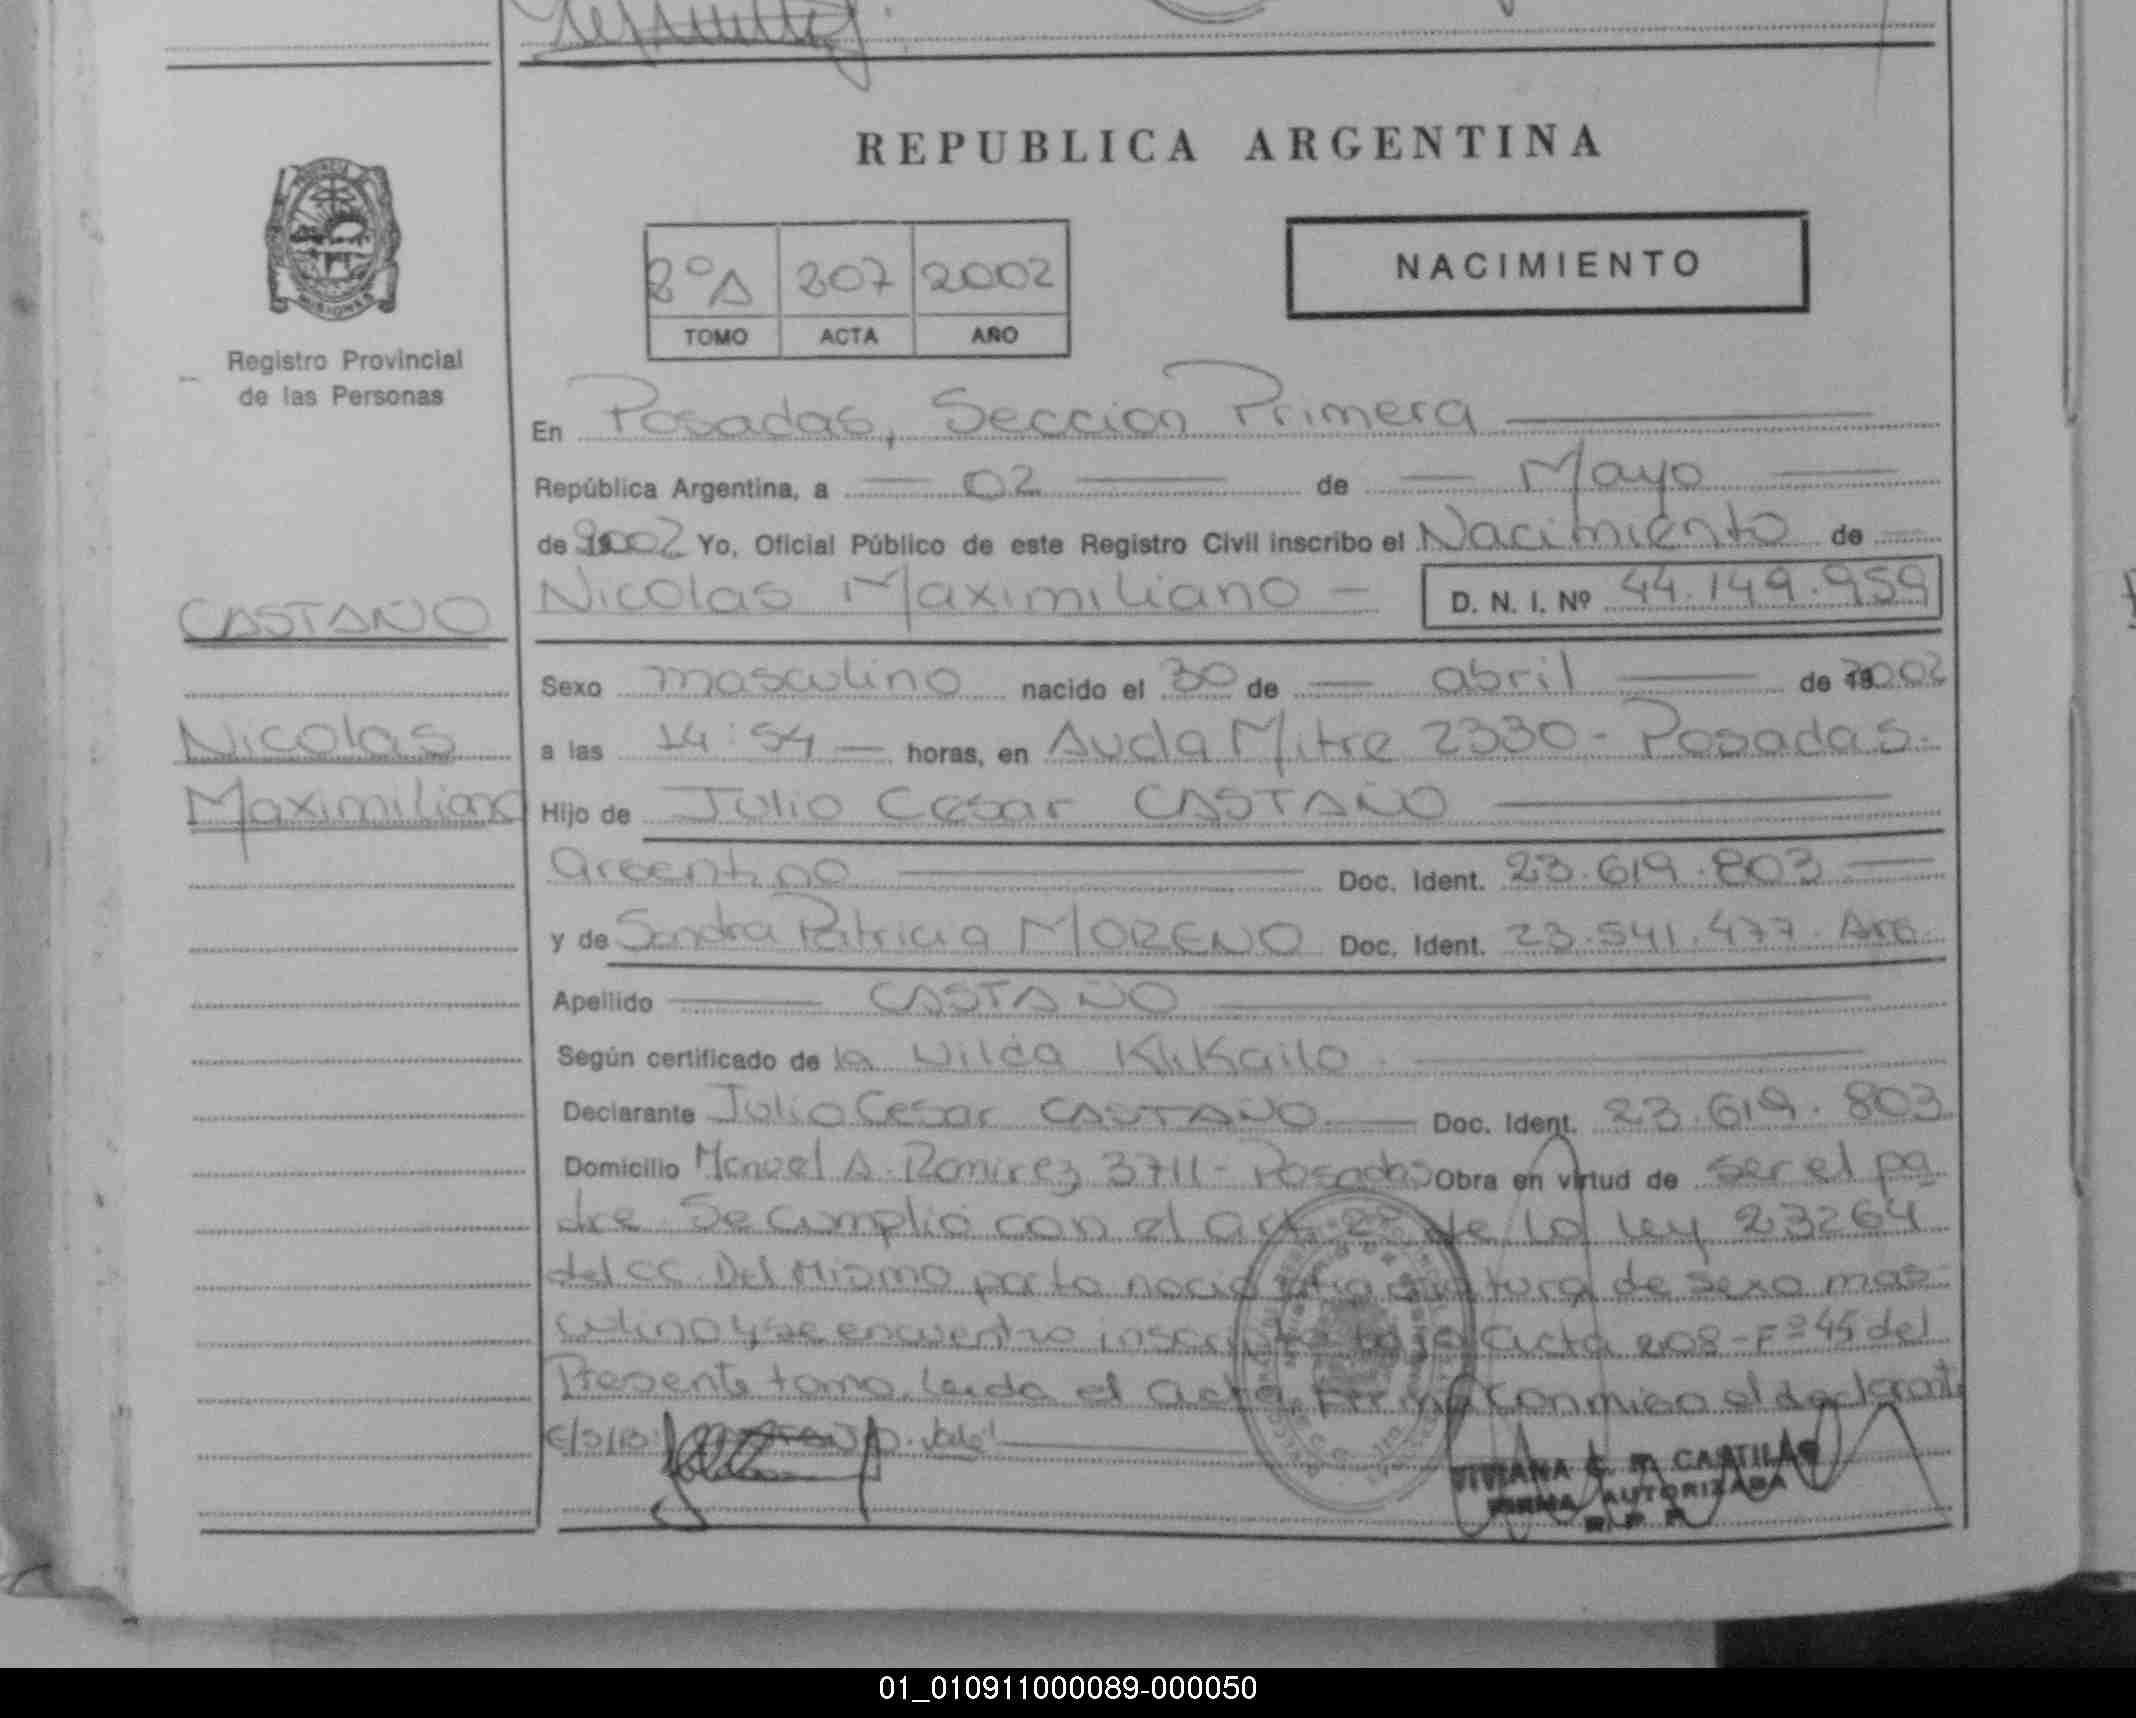 REPUBLICA ARGENTINA
NACIMIENTO
2ºA 207 2002
TOMO ACTA AÑO
Registro Provincial
de las Personas
En Posadas, Seccion Primera
República Argentina, a 02 de Mayo
de 2002 Yo, Oficial Público de este Registro Civil inscribo el Nacimiento de
CASTAÑO
Nicolas Maximiliano - D. N. I. Nº 44.149.959
Sexo masculino nacido el 30 de abril de 2002
Nicolas
a las 14:54 horas, en Avda Mitre 2330 - Posadas.
Maximiliano
Hijo de Julio Cesar CASTAÑO
argentino Doc. Ident. 23.619.803
y de Sandra Patricia MORENO Doc. Ident. 23.541.477. Arg.
Apellido CASTAÑO
Según certificado de la Wilda
Declarante Julio Cesar CASTAÑO Doc. Ident. 23.619.803
Domicilio Manuel A. Ramirez 3711 - Posadas Obra en virtud de ser el pa
dre. Se cumplió con el art. de la ley 23264
del CC. Del Mismo parto nació otra criatura de sexo mas-
culino y se encuentra inscripta bajo acta 208 - Fº 45 del
Presente tomo. Leida el acta, firma conmigo el declarante
Vale!
VIVIANA CASTILLO
FIRMA AUTORIZADA
R. P. P.
01_010911000089-000050